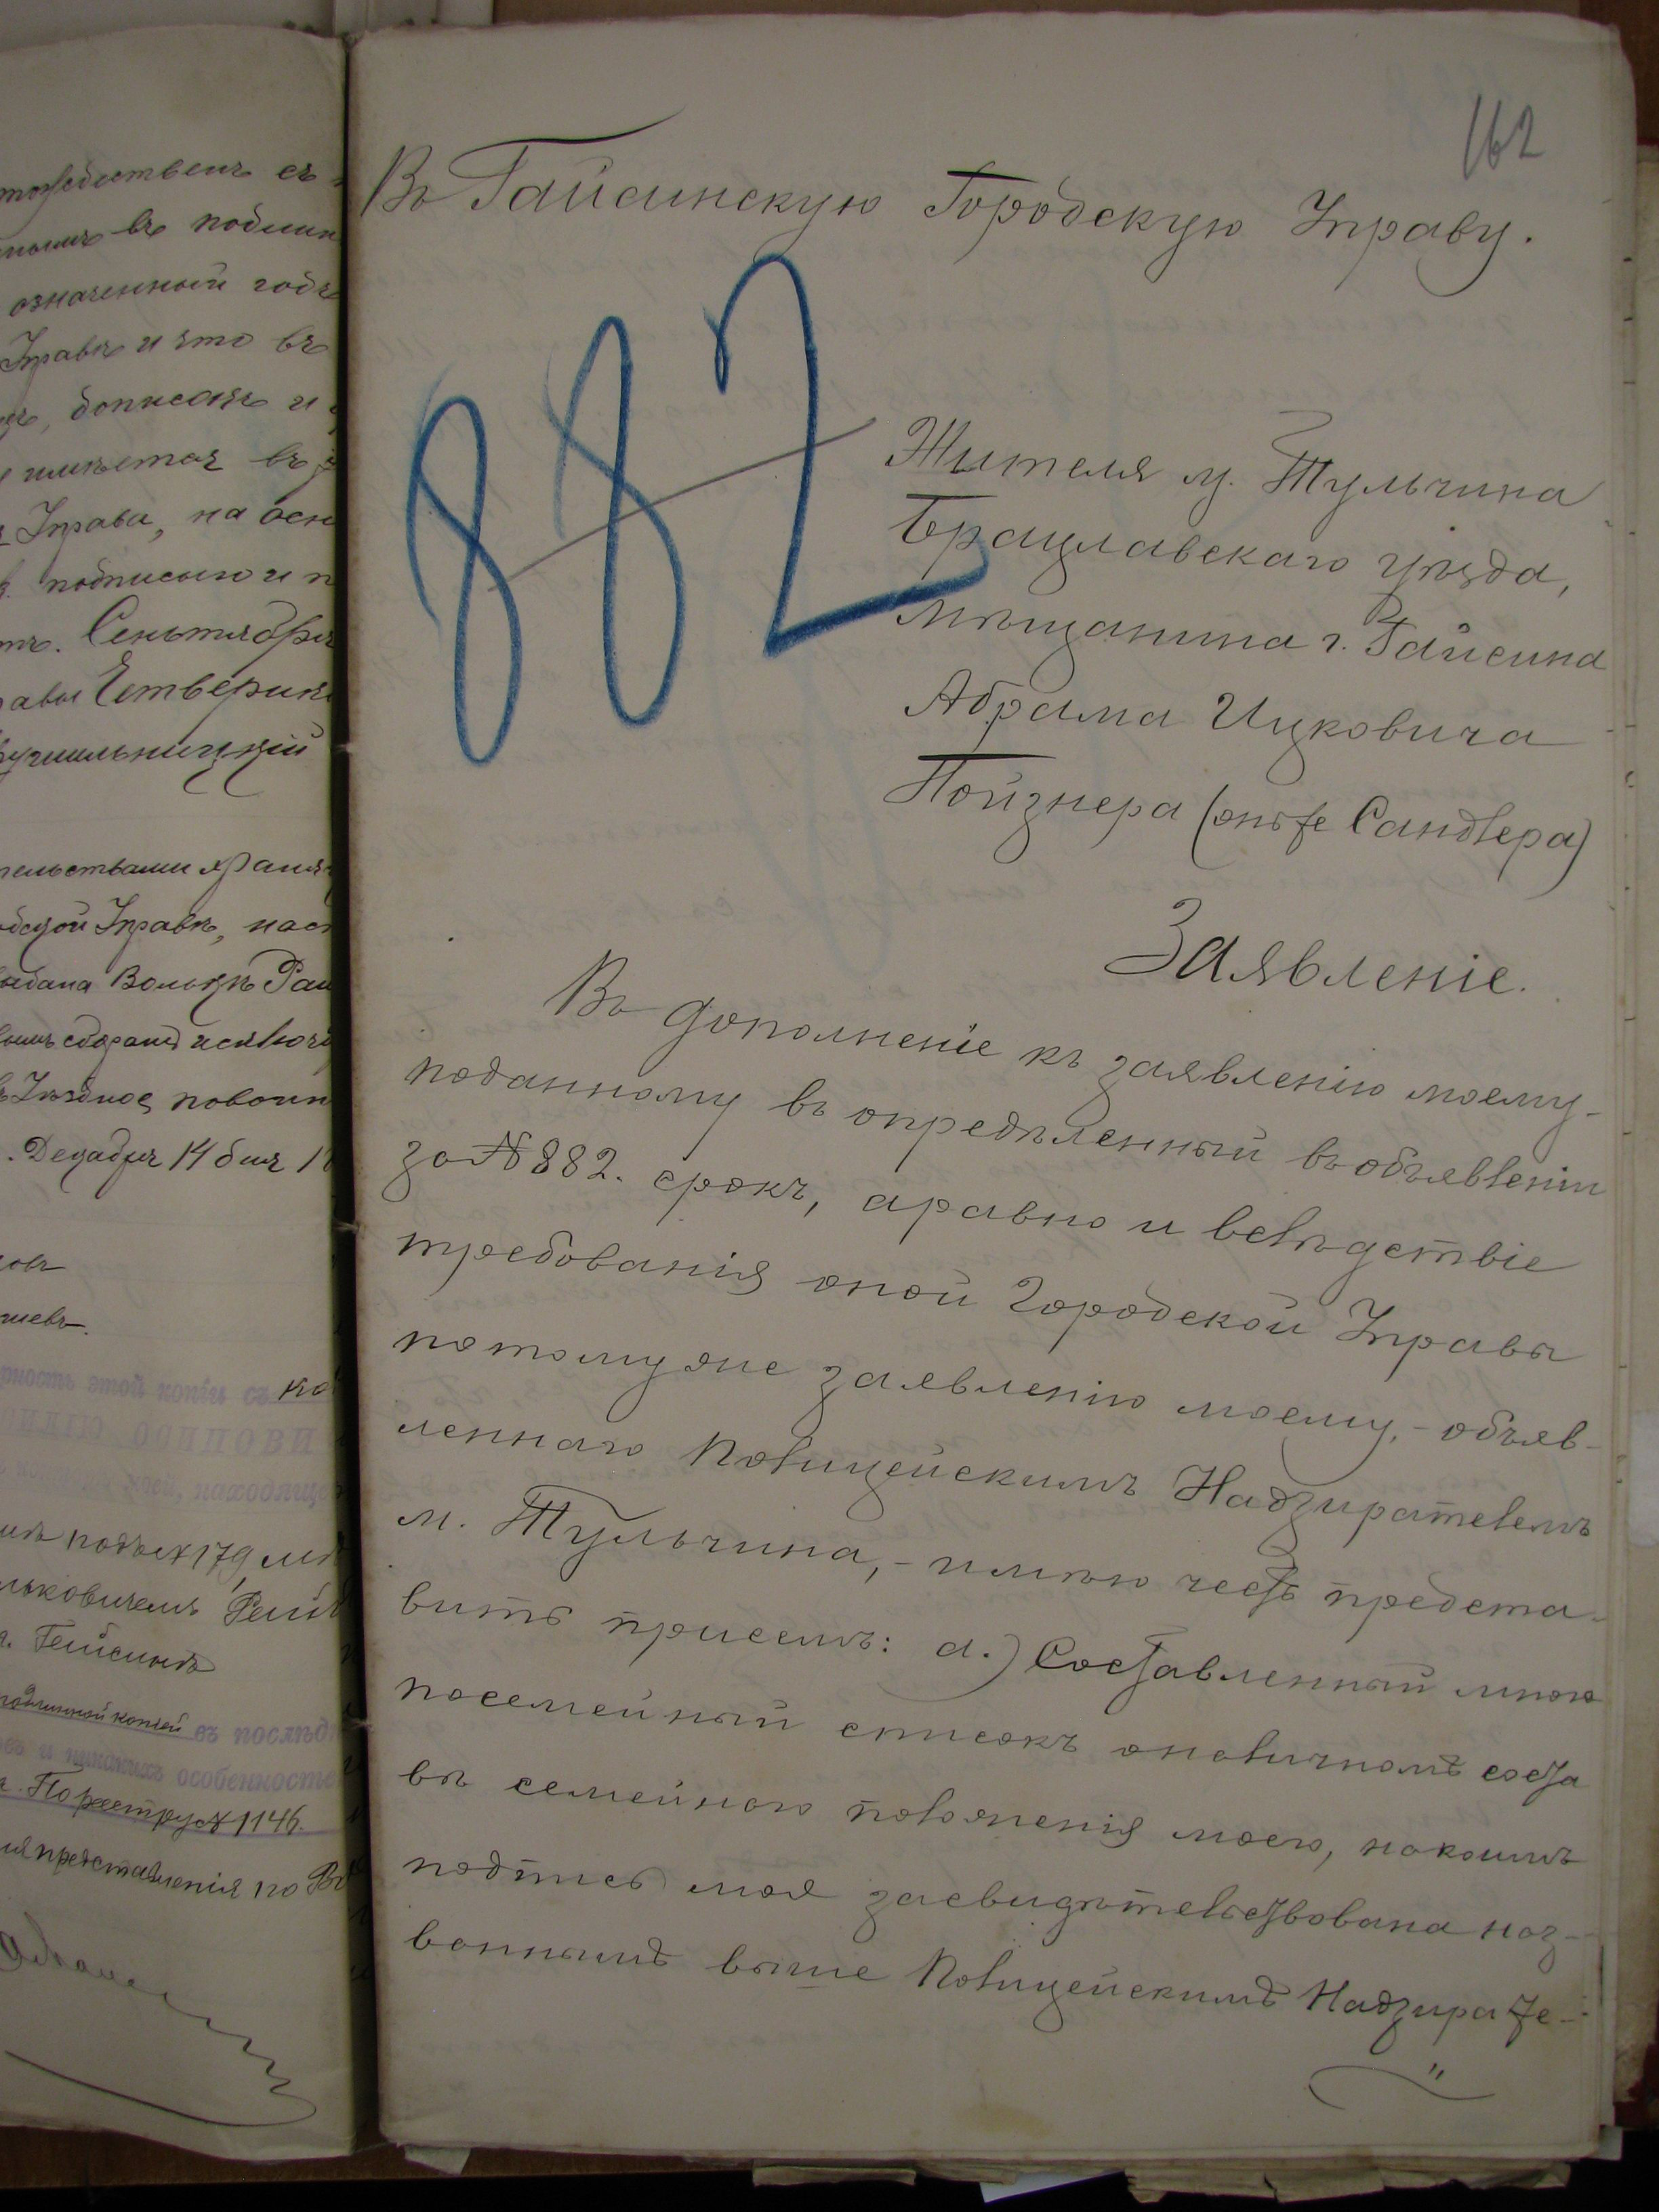 тождественъ съ
въ подлин
означенный годъ
Управѣ и что въ
дописокъ и
имѣется въ
Управа, на осн
подписью и п
Сентября
Четверик
тельствами храня
Управѣ, наст
Вольфъ Рай
Уѣздное повин
Декабря 14 дня 1
ность этой копіи съ
ОСИПОВИ
моей, находящ
Гайсинъ
подлинной копіей въ послѣд
и никакихъ особенносте
По реестру № 1146.
представленія по Во
162
Въ Гайсинскую Городскую Управу.
882
Жителя м. Тульчина
Брацлавскаго уѣзда,
мѣщанина г. Гайсина
Абрама Ицковича
Пойзнера (онъ же Сандлера)
Заявленіе.
Въ дополненіе къ заявленію моему-
поданному въ опредѣленный въ объявленіи
за № 882. срокъ, аравно и вслѣдствіе
требованія оной Городской Управы
потому же заявленію моему, - объяв-
леннаго Полицейскимъ Надзирателемъ
м. Тульчина, - имѣю честь предста-
вить присемъ: а.) Составленный мною
посемейный списокъ оналичномъ соста
вѣ семейного положенія моего, накоимъ
подпись моя засвидѣтельствована наз-
ваннымъ выше Полицейскимъ Надзирате-